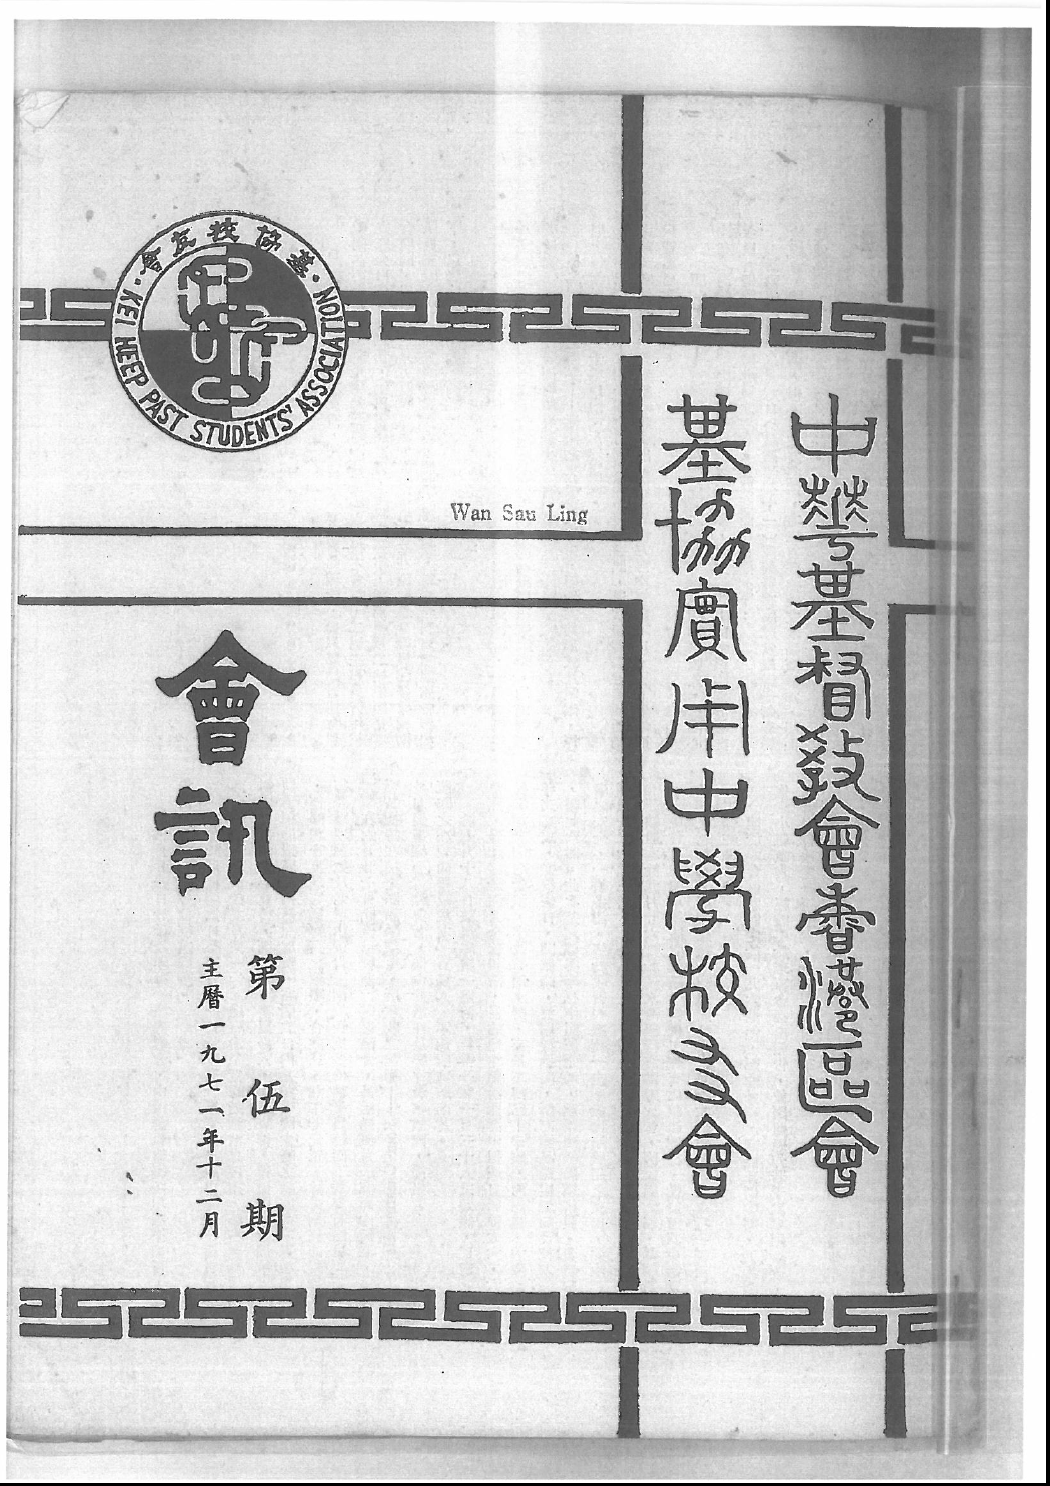 中華基督教會香港區會
基協實用中學校友會
基協校友會
KEI HEEP PAST STUDENTS' ASSOCIATION
Wan Sau Ling
會訊
第伍期
主曆一九七一年十二月